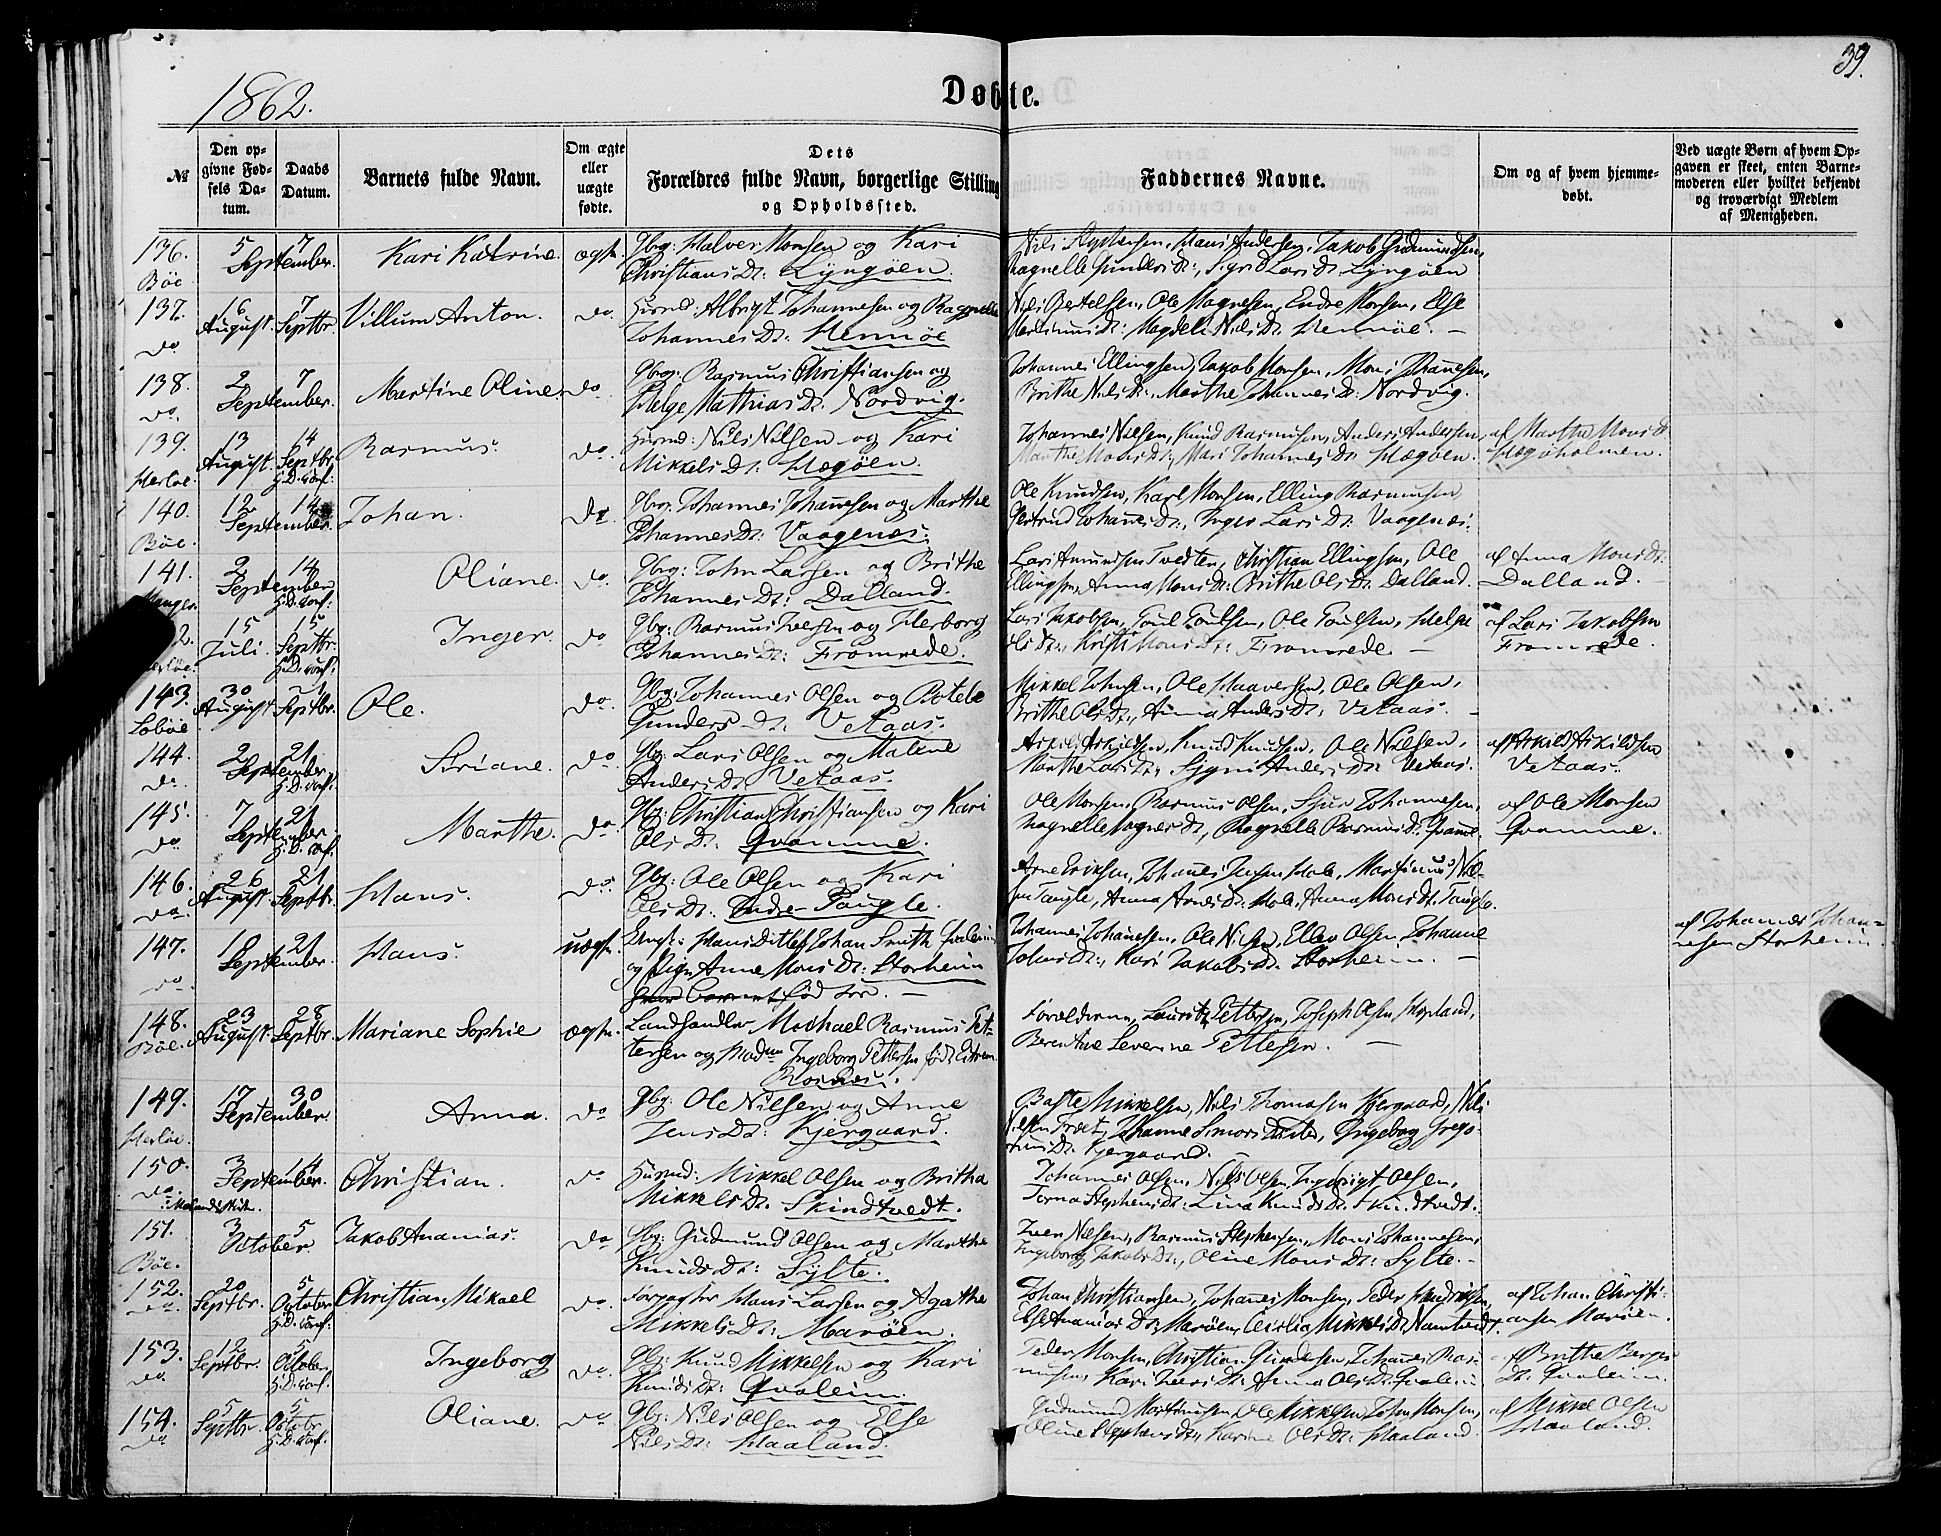 39.
1862.
Døbte.
№
Den opgivne Fødsels Datum.
Daabs Datum.
Barnets fulde Navn.
Om ægte eller uægte fødte.
Dets Forældres fulde Navn, borgerlige Stilling og Opholdssted.
Faddernes Navne.
Om og af hvem hjemmedøbt.
Ved uægte Børn af hvem Opgaven er skeet, enten Barnemoderen eller hvilket bekjendt og troværdigt Medlem af Menigheden.
136. Bøe 5 7 September. Kari Katrine. ægte. Gbrg: Halver Monsen og Kari
Christians Dt: Lyngøen.
Hans Andersen, Jakob Gudmundsen,
Ragnelle Gunders dt:, Sigrid Lars dt Lyngøen
137. do 16 August. 7 Septbr. Villum Anton. do. Huusmd: Albrigt Johannesen og Ragnelle
Johannes Dt: Hennøe
Nils Bertelsen, Ole Magnesen, Endre Monsen, Else
Martinus dt: Magdeli Nils Dt. Hennøe. –
138. do. 2 7 September. Martine Oline. do. Gbrg: Rasmus Christiansen og
Helge Mathias Dt. Nordvig.
Johannes Ellingsen, Jakob Monsen, Mons Johannesen,
Brithe Nils Dt., Marthe Johannes Dt. Nordvig.
139. Herløe. 13 August. 14 Septbr. Rasmus. do. Huusmd: Nils Nilsen og Kari
Mikkels Dt: Hægøen.
Johannes Nilsen, Knud Rasmusen, Anders Andersen,
Marthe Mons Dt., Mari Johannes Dt. Hægøen.
af Marthe Mons Dt
Hægøholmen.
140. Bøe. 12 14 September. Johan. do. Gbrg. Johannes Johannesen og Marthe
Johannes Dt: Vaagenes.
Ole Knudsen, Karl Monsen, Elling Rasmusen
Gertrud Johannes Dt., Inger Lars Dt: Vaagenes.
141. Manger 2 14 September Oliane. do. Gbrg: John Larsen og Brithe
Johannes Dt: Dalland.
Lars Amundsen Tvedten, Christian Ellingsen, Ole
Ellingsen, Anna Mons Dt: Brithe Ols Dt. Dalland.
af Anna Mons Dt:
Dalland. –
15 Juli 15 Septbr. Inger. do Gbg: Rasmus Iversen og Herborg
Johannes Dt: Fromrede.
Lars Jakobsen, Poul Poulsen, Ole Poulsen, Helge
Ols Dt., Kristi Mons Dt: Fromrede. –
af Lars Jakobsen
Fromrede.
143. Sæbøe 30 August 21 Septbr. Ole. do. Gbg: Johannes Olsen og Botele
Gunders Dt: Vetaas.
Mikkel Johnsen, Ole Haaversen, Ole Olsen,
Brithe Ols Dt., Anna Anders Dt., Vetaas. –
144. do. 2 21 September Ariane. do. Gbg. Lars Olsen og Malene
Anders Dt: Vetaas.
Askild Askildsen, Knud Knudsen, Ole Nilsen,
Marthe Lars Dt:, Sygni Anders Dt: Vetaas.
af Askild Askildsen
Vetaas.
145. do 7 21 September Marthe. do. Gbg: Christian Christiansen og Kari
Ols Dt: Qvamme.
Ole Monsen, Rasmus Olsen, Sjur Johannesen,
Ragnelle Magnes dt, Ragnelle Rasmus dt. Qvamme.
af Ole Monsen
Qvamme.
146. do 26 August. 21 Septbr. Hans. do. Gbg: Ole Olsen og Kari
Ols Dt: Indre Tangle.
Arne Eriksen, Johannes Hole, Martinus
Tangle, Anna Arnes dt: Hole, Anna Mons dt. Tangle.
147. do 10 21 September. Hans. uægte. Hans Ditlef Johan Smith
og Pige Anne Mons Dt: Storheim
Johannes Johannesen, Ole Nilsen, Ellev Olsen, Johanne
Johns Dt., Kari Jakobs dt. Storheim. –
af Johannes Johan-
nesen Storheim.
148. Bøe. 23 August. 28 Septbr. Mariane Sophie ægte. Landhandler Michael Rasmus Pet-
tersen og Madm Ingeborg Pettersen født
Rosnes.
Forældrene, Lauritz Pettersen, Joseph Olsen Hopland,
Berentine Severine Pettersen. –
149. Herløe 17 30 September. Anna. do Gbg. Ole Nilsen og Anne
Jens Dt: Kjergaard.
Baste Mikkelsen, Nils Thomasen Kjergaard, Nils
Nilsen Tvedt, Johanne Simons Ingeborg Grego-
rius Dt. Kjergaard.
150. do 3 14 September. Christian. do Huusmd: Mikkel Olsen og Britha
Mikkels Dt. Skindtvedt.
Johannes Olsen, Nils Olsen, Ingebrigt Olsen,
Stephens dt: Lina Knuds Dt. Skindtvedt.
151. Bøe. 3 5 October Jakob Ananias. do Gbg: Gudmund Olsen og Marthe
Knuds Dt: Sylte.
Iver Nilsen, Rasmus Stephensen, Mons Johannesen,
Ingeborg Jakobs Dt., Oline Mons Dt: Sylte. –
152. do. 20 Septbr. 5 October Christian Mikael do. Hans Larsen og Agathe
Mikkels Dt: Marøen.
Johan Christiansen, Johannes Monsen, Peder Hendriksen,
Else Ananias Dt: Marøen, Cecilia Mikkels dt
af Johan Christi-
ansen Marøen.
153. do. 12 Septbr. 5 October Ingeborg do. Gbg: Knud Mikkelsen og Kari
Knuds Dt: Qvaleim.
Peder Monsen, Christian Gundersen, Johannes Ras-
musen, Kari Ivers Dt: Anna Ols Dt. Qvaleim
af Brithe
Dt. Qvaleim.
154. do 5 Septbr. 5 Octobr Oliane. do. Gbg: Nils Olsen og Else
Nils Dt: Haaland.
Gudmund Martinusen, Ole Mikkelsen, John Monsen,
Oline Stephens Dt., Karine Ols Dt: Haaland.
af Mikkel Olsen
Haaland.